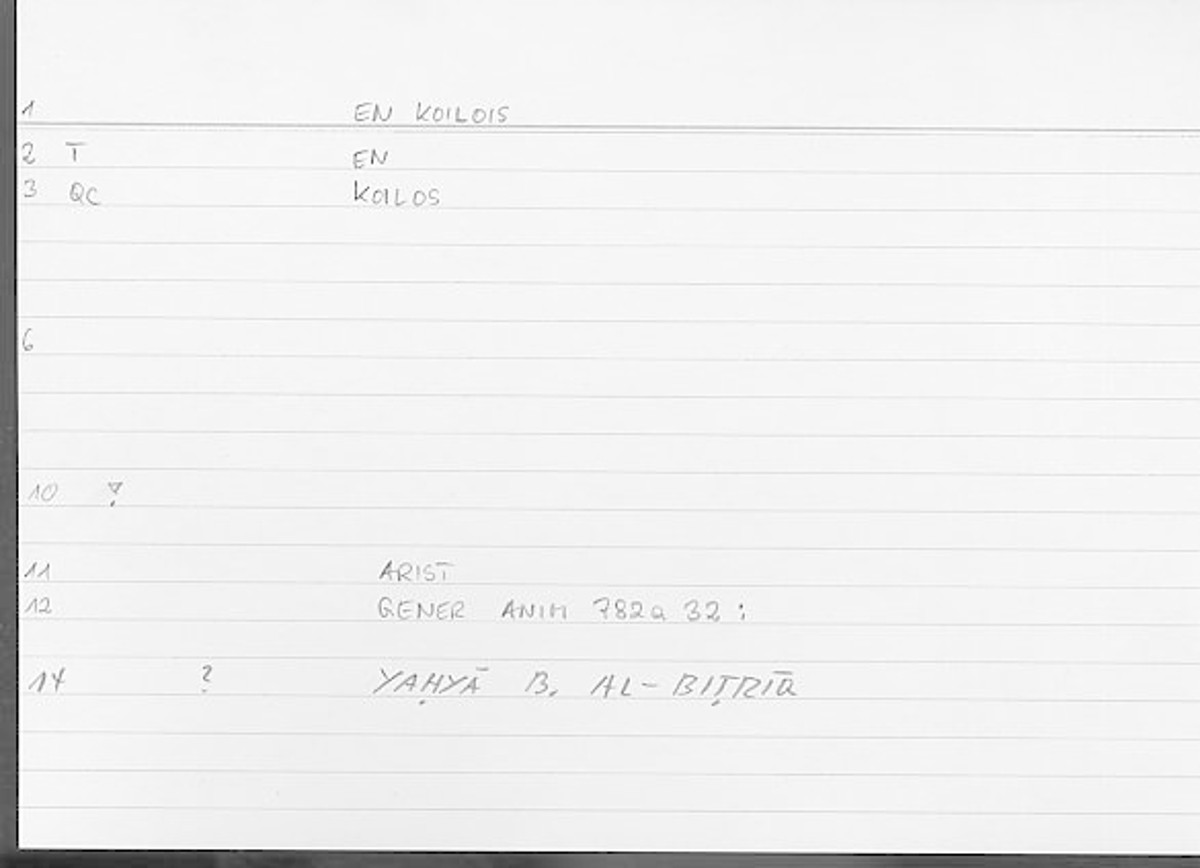 1 EN KOILOIS
2 T EN
3 QC KOILOS
6
10
11 ARIST
12 GENER ANIM 782a 32 :
14 ? YAḤYĀ B. AL-BIṬRĪQ